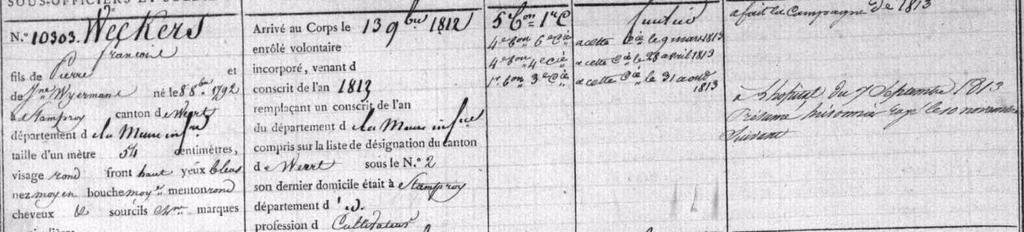 SOUS-OFFICIERS ET
N.° 10303. Weekers
francois
fils de Pierre et
de Jne Wyermans né le 8 8bre 1792
à Stamproy canton d e Wert
département d e la Meuse infre
taille d'un mètre 54 centimètres,
visage rond front haut yeux bleus
nez moyen bouche moye menton rond
cheveux et sourcils marques
Arrivé au Corps le 13 9bre 1812
enrôlé volontaire
incorporé, venant d
conscrit de l'an 1813
remplaçant un conscrit de l'an
du département d e la Meuse infre
compris sur la liste de désignation du canton
d e Wert sous le N.° 2
son dernier domicile était à Stamproy
département d id.
profession d Cultivateur
5e bon 1re Cie
4e bon 6e Cie
4e bon 4e Cie
1er bon 3e Cie
fusilier
a cette Cie le 9 mars 1813
a cette Cie le 28 avril 1813
a cette Cie le 31 aout
1813
a fait la Campagne de 1813
à l'hopital du 7 Septembre 1813
Présumé prisonnier rayé le 10 novembre
Suivant